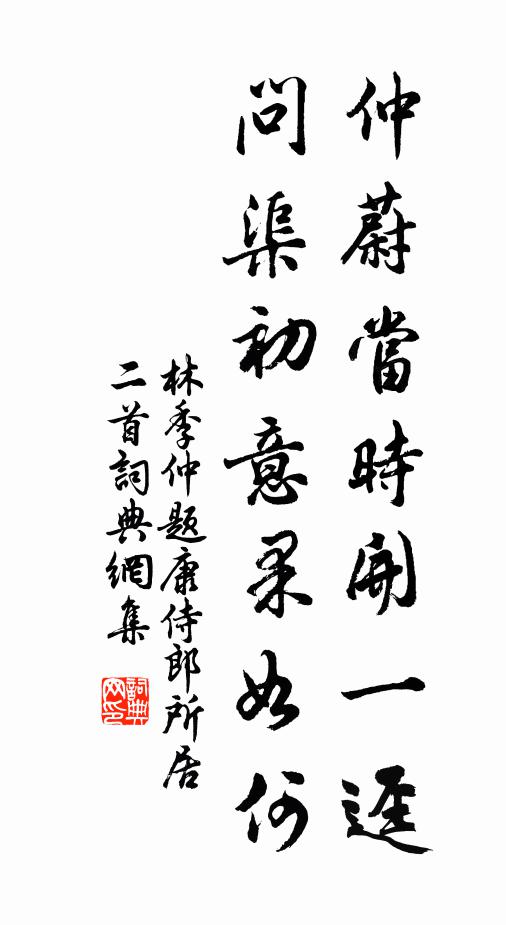 仲蔚當時開一逕
問渠初意果如何
林季仲題康侍郎所居
二首詞典網集
詞典網印